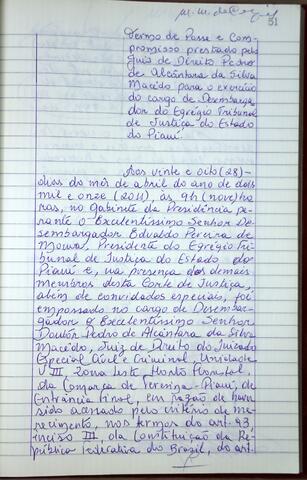 51
Termo de Posse e Com-
promisso prestado pelo
Juiz de Direito Pedro
de Alcântara da Silva
Macêdo para o exercício
do cargo de Desembarga-
dor do Egrégio Tribunal
de Justiça do Estado
do Piauí
Aos vinte e oito (28)
dias do mês de abril do ano de dois
mil e onze (2011), às 9h (nove) ho-
ras, no Gabinete da Presidência pe-
rante o Excelentíssimo Senhor De-
sembargador Edvaldo Pereira de
Moura, Presidente do Egrégio Tri-
bunal de Justiça do Estado do
Piauí e, na presença dos demais
membros desta Corte de Justiça,
além de convidados especiais, foi
empossado no cargo de Desembar-
gador o Excelentíssimo Senhor
Doutor Pedro de Alcântara da Silva
Macêdo, Juiz de Direito do Juizado
Especial Cível e Criminal, Unidade
VIII - Zona Leste, Horto Florestal,
da Comarca de Teresina - Piauí, de
Entrância Final, em razão de haver
sido acessado pelo critério de me-
recimento, nos termos do art. 93
inciso III, da Constituição da Re-
pública Federativa do Brasil, do art.